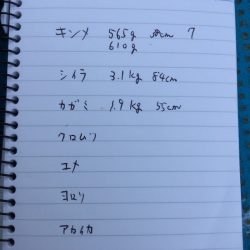 キンメ 565g cm 7
610g
シイラ 3.1kg 84cm
カガミ 1.9kg 55cm
クロムツ
ユメ
ヨロリ
アカイカ